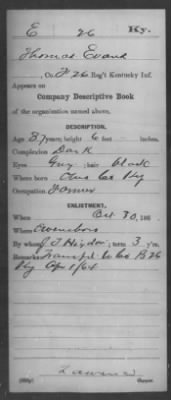 E 26 Ky.
Thomas Evans
, Co. F, 26 Reg't Kentucky Inf.
Appears on
Company Descriptive Book
of the organization named above.
DESCRIPTION.
Age 37 years; height 6 feet inches.
Complexion Dark
Eyes Gray; hair black
Where born Co Ky
Occupation Farmer
ENLISTMENT.
When Oct 30, 186
Where Owensboro
By whom J. T. Higdon; term 3 y'rs.
Remarks: Transf'd to Co B 26
Ky Apr 1/64
Copyist.